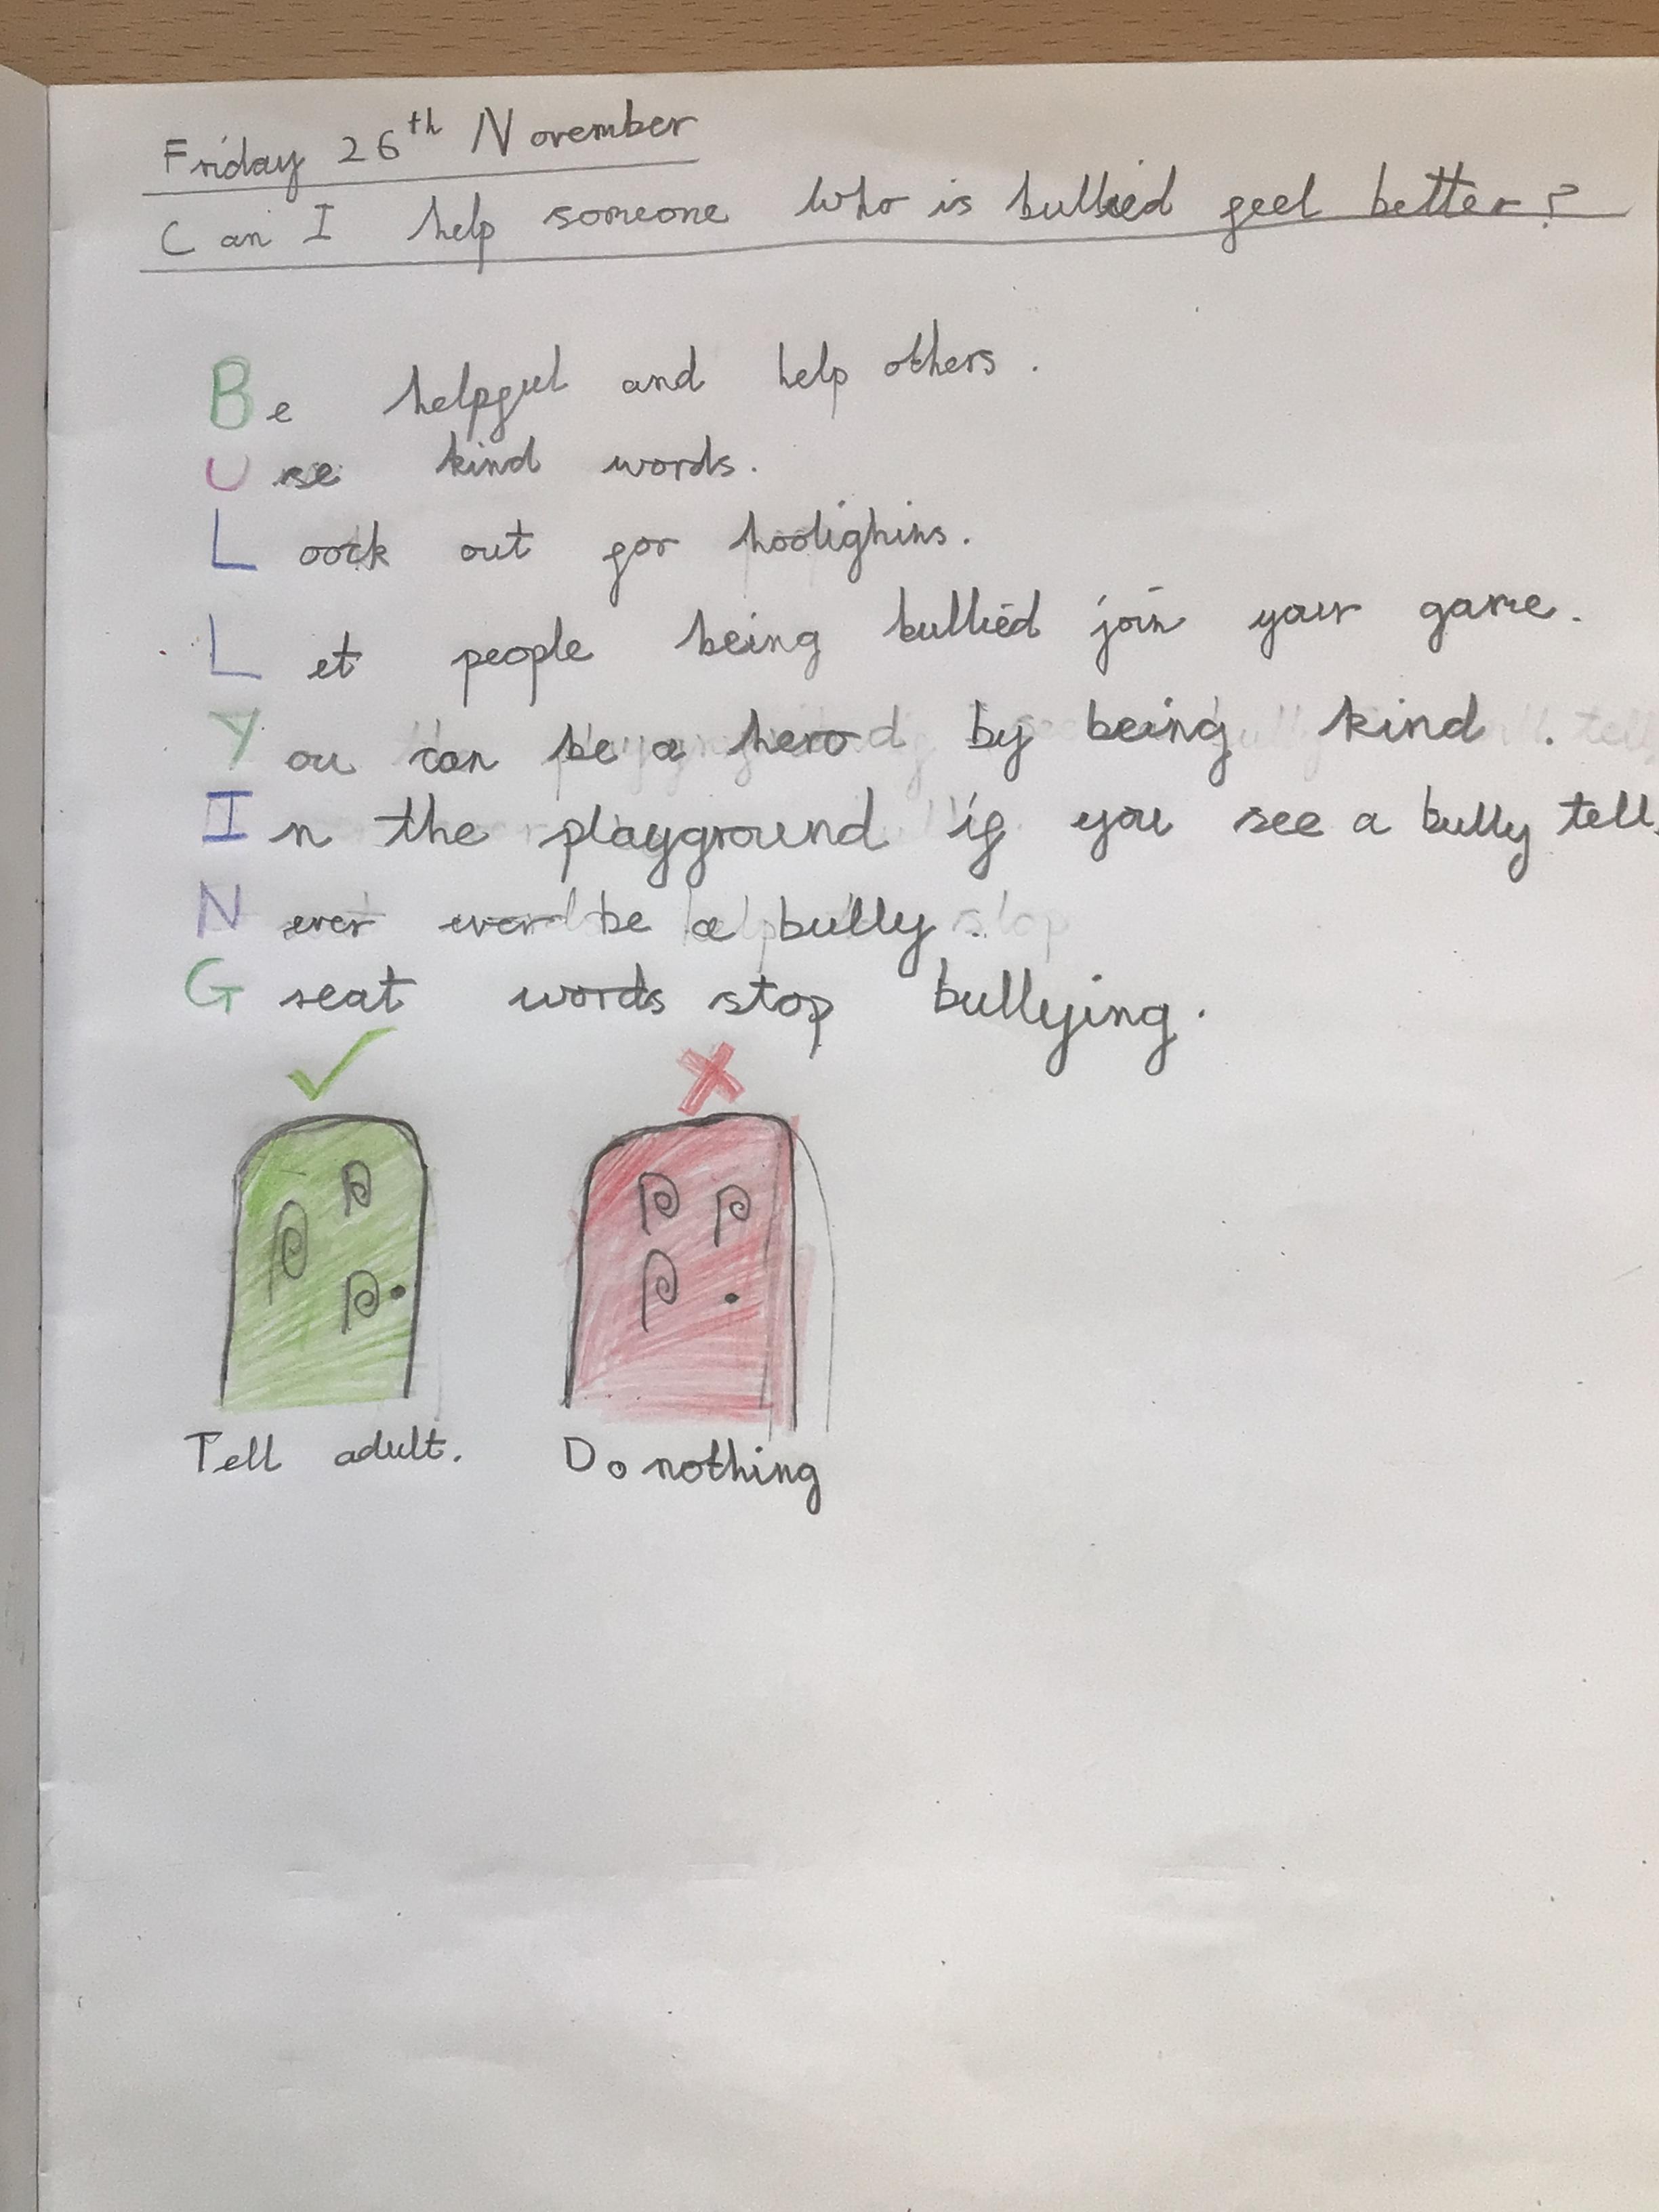 Friday 26th November
Can I help someone who is bullied feel better?
Be helpful and help others.
Use kind words.
Loock out for hoolighins.
Let people being bullied join your game.
You can be a hero by being kind.
In the playground if you see a bully tell.
Never ever be a bully.
Great words stop bullying.
Tell adult.
Do nothing